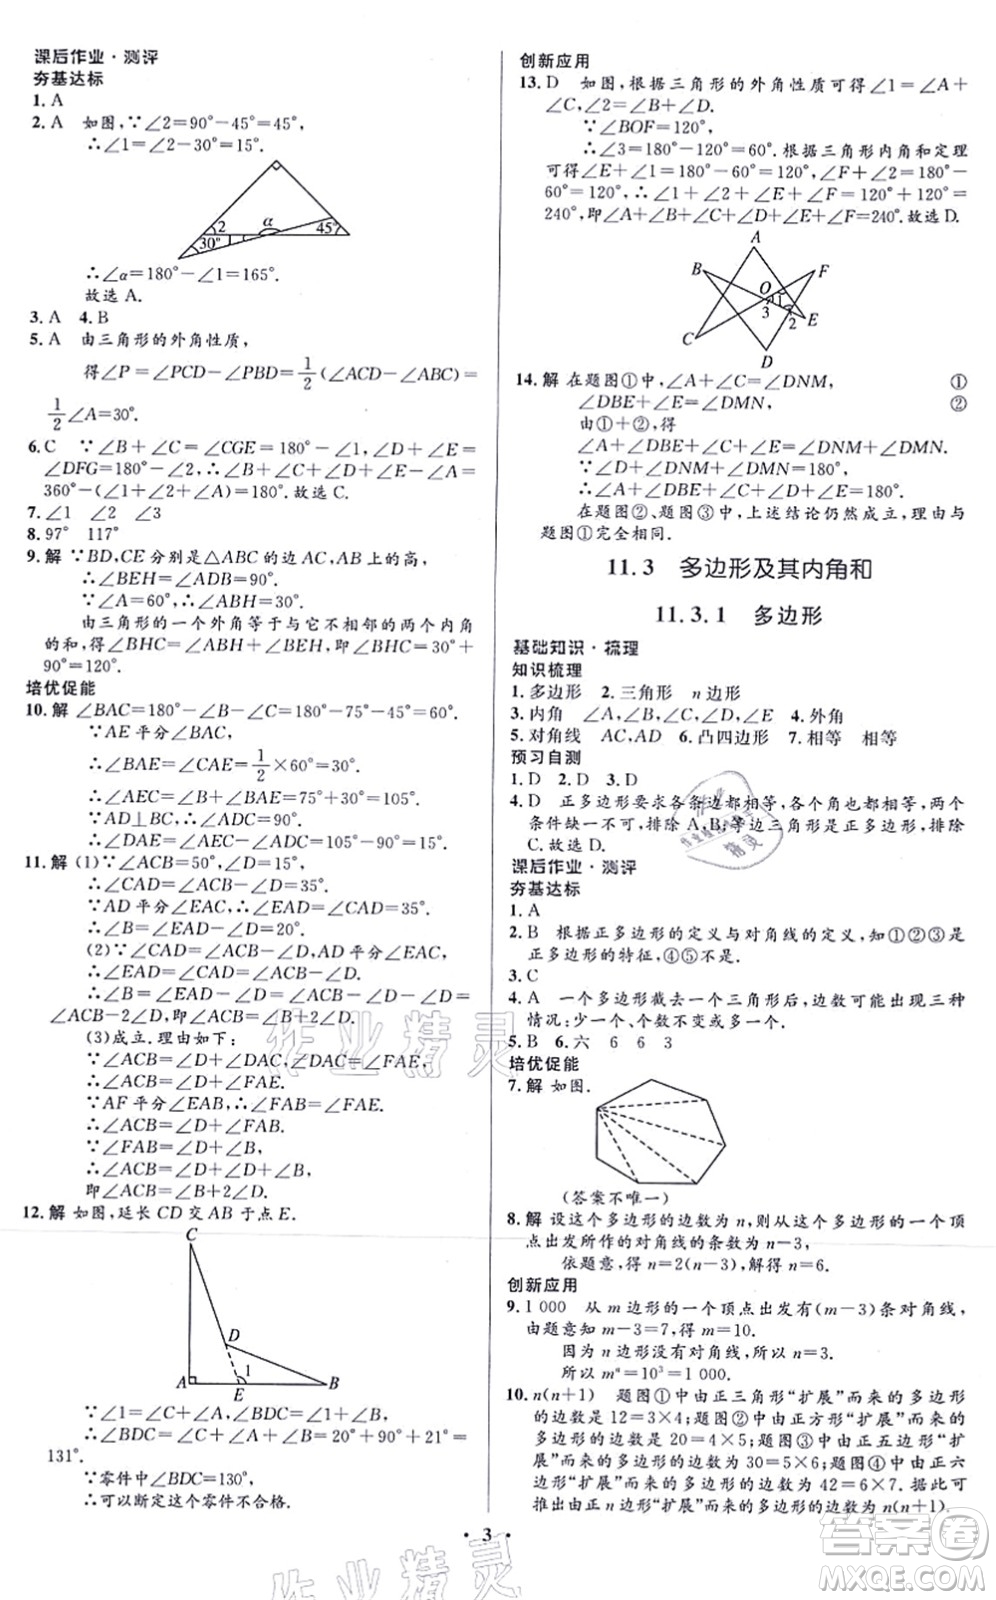 课后作业·测评
夯基达标
1. A
2. A 如图,∵∠2=90°-45°=45°,
∴∠1=∠2-30°=15°.
2 α 45°
30° 1
∴∠α=180°-∠1=165°.
故选 A.
3. A 4. B
5. A 由三角形的外角性质,
得∠P=∠PCD-∠PBD=1/2(∠ACD-∠ABC)=
1/2∠A=30°.
6. C ∵∠B+∠C=∠CGE=180°-∠1,∠D+∠E=
∠DFG=180°-∠2,∴∠B+∠C+∠D+∠E-∠A=
360°-(∠1+∠2+∠A)=180°.故选 C.
7. ∠1 ∠2 ∠3
8. 97° 117°
9. 解 ∵BD,CE 分别是△ABC 的边 AC,AB 上的高,
∴∠BEH=∠ADB=90°.
∵∠A=60°,∴∠ABH=30°.
由三角形的一个外角等于与它不相邻的两个内角
的和,得∠BHC=∠ABH+∠BEH=30°+90°=
120°.
培优促能
10. 解 ∠BAC=180°-∠B-∠C=180°-75°-45°=60°.
∵AE 平分∠BAC,
∴∠BAE=∠CAE=1/2×60°=30°.
∴∠AEC=∠B+∠BAE=75°+30°=105°.
∵AD⊥BC,∴∠ADE=90°.
∴∠DAE=∠AEC-∠ADE=105°-90°=15°.
11. 解 (1)∵∠ACB=50°,∠D=15°,
∴∠CAD=∠ACB-∠D=35°.
∵AD 平分∠EAC,∴∠EAD=∠CAD=35°.
∴∠B=∠EAD-∠D=20°.
(2)∵∠CAD=∠ACB-∠D,AD 平分∠EAC,
∴∠EAD=∠CAD=∠ACB-∠D.
∴∠B=∠EAD-∠D=∠ACB-∠D-∠D=
∠ACB-2∠D,即∠ACB=∠B+2∠D.
(3)成立.理由如下:
∵∠ACB=∠D+∠DAC,∠DAC=∠FAE,
∴∠ACB=∠D+∠FAE.
∵AF 平分∠EAB,∴∠FAE=∠FAB.
∴∠ACB=∠D+∠FAB.
∵∠FAB=∠D+∠B,
∴∠ACB=∠D+∠D+∠B,
即∠ACB=∠B+2∠D.
12. 解 如图,延长 CD 交 AB 于点 E.
C
D
1
A E B
∵∠1=∠C+∠A,∠BDC=∠1+∠B,
∴∠BDC=∠C+∠A+∠B=20°+90°+21°=
131°.
∵零件中∠BDC=130°,
∴可以断定这个零件不合格.
创新应用
13. D 如图,根据三角形的外角性质可得∠1=∠A+
∠C,∠2=∠B+∠D.
∵∠BOF=120°,
∴∠3=180°-120°=60°.根据三角形内角和定理
可得∠E+∠1=180°-60°=120°,∠F+∠2=180°-
60°=120°,∴∠1+∠2+∠E+∠F=120°+120°=
240°,即∠A+∠B+∠C+∠D+∠E+∠F=240°.故选 D.
A
B F
O 1
3 2 E
C
D
14. 解 在题图①中,∠A+∠C=∠DNM, ①
∠DBE+∠E=∠DMN, ②
由①+②得
∠A+∠DBE+∠C+∠E=∠DNM+∠DMN.
∵∠D+∠DNM+∠DMN=180°,
∴∠A+∠DBE+∠C+∠D+∠E=180°.
在题图②、题图③中,上述结论仍然成立,理由与
题图①完全相同.
11.3 多边形及其内角和
11.3.1 多边形
基础知识·梳理
知识梳理
1. 多边形 2. 三角形 n边形
3. 内角 ∠A,∠B,∠C,∠D,∠E 4. 外角
5. 对角线 AC,AD 6. 凸四边形 7. 相等 相等
预习自测
1. D 2. D 3. D
4. D 正多边形要求各条边都相等,各个角也都相等,两个
条件缺一不可,排除 A,B;等边三角形是正多边形,排除
C.故选 D.
课后作业·测评
夯基达标
1. A
2. B 根据正多边形的定义与对角线的定义,知①②③是
正多边形的特征,④⑤不是.
3. C
4. A 一个多边形截去一个三角形后,边数可能出现三种
情况:少一个、个数不变或多一个.
5. B 6. 六 6 6 3
培优促能
7. 解 如图.
(答案不唯一)
8. 解 设这个多边形的边数为 n,则从这个多边形的一个顶
点出发所作的对角线的条数为 n-3,
依题意,得 n=2(n-3),解得 n=6.
创新应用
9. 1 000 从 m 边形的一个顶点出发有(m-3)条对角线,
由题意知 m-3=7,得 m=10.
因为 n 边形没有对角线,所以 n=3.
所以 mⁿ=10³=1 000.
10. n(n+1) 题图①中由正三角形“扩展”而来的多边形
的边数是 12=3×4;题图②中由正方形“扩展”而来的
多边形的边数是 20=4×5;题图③中由正五边形“扩
展”而来的多边形的边数是 30=5×6;题图④中由正六
边形“扩展”而来的多边形的边数是 42=6×7;以此可
推出由正 n 边形“扩展”而来的多边形的边数为 n(n+1).
·3·
作业精灵
作业精灵
精灵
答案圈
MXQE.COM